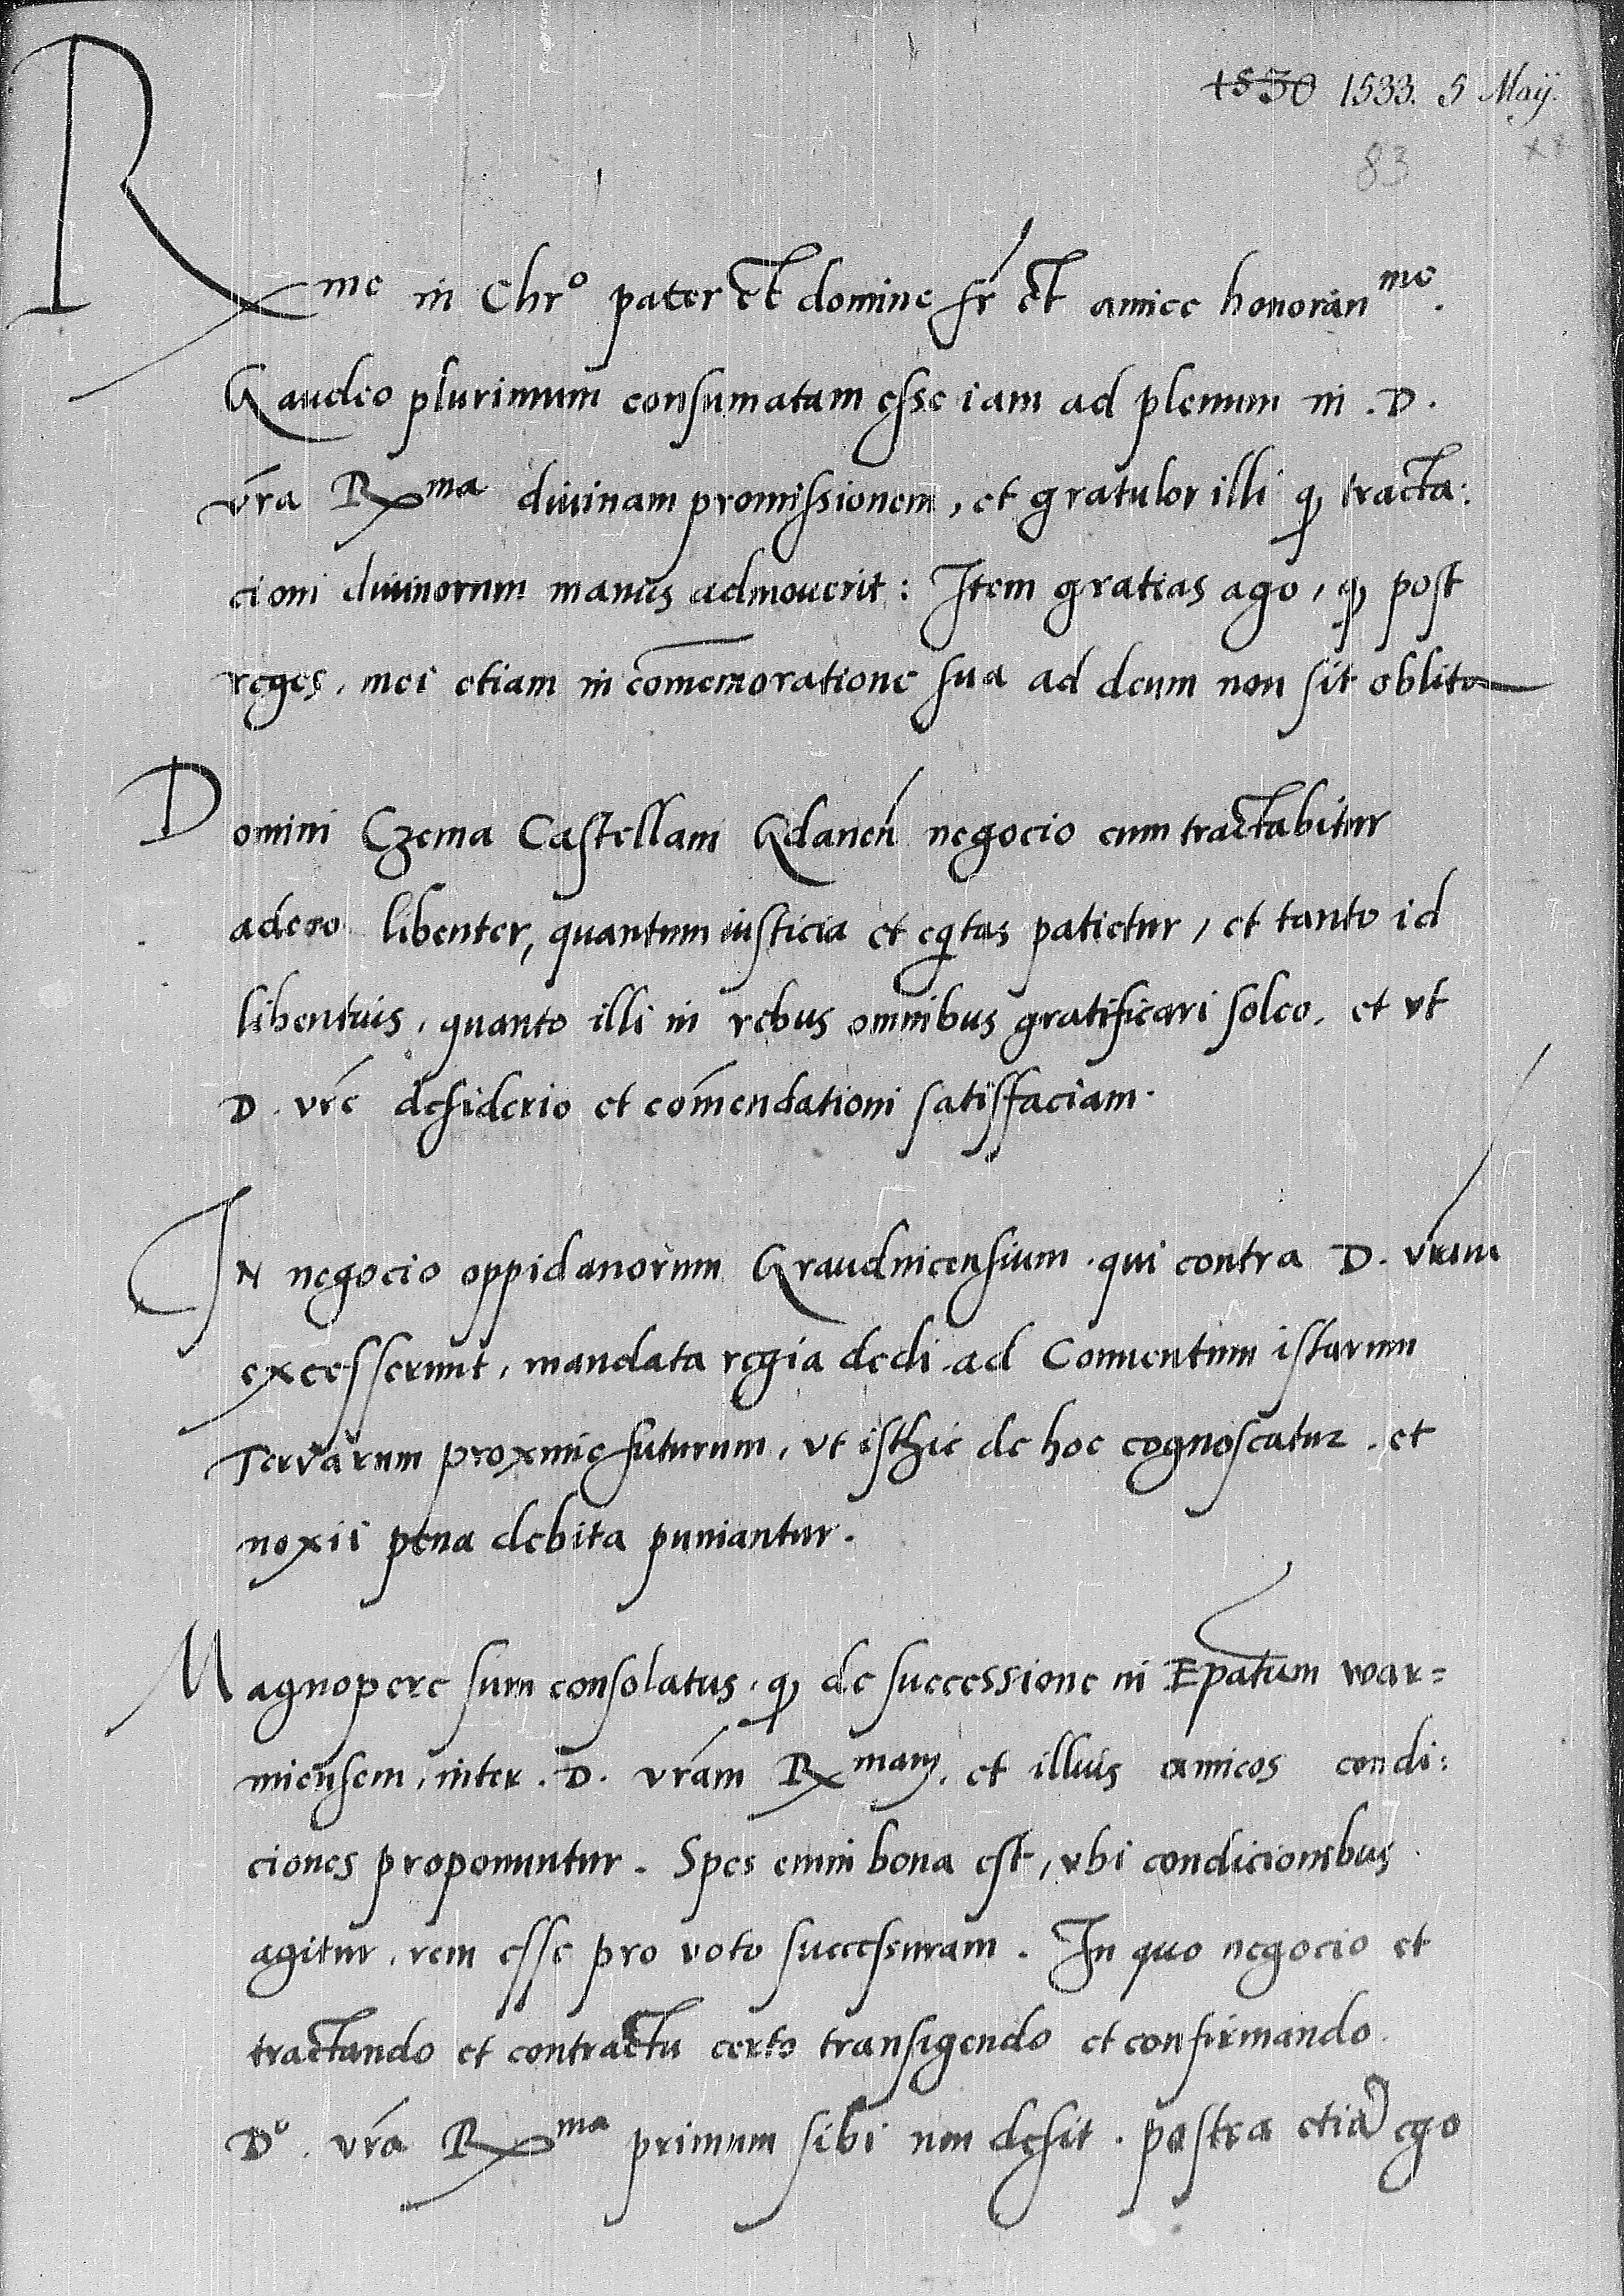 1530 1533. 5 Maij.
83
Rx^me in Chr^o pater et domine fr et amice honoran^me.
Gaudeo plurimum consumatam esse iam ad plenum in .D.
vra Rx^ma diuinam promissionem, et gratulor illi q tracta:
cioni diuinorum manus admouerit: Item gratias ago, q post
reges, mei etiam in comemoratione sua ad deum non sit oblita
Domini Czema Castellani Gdanen negocio cum tractabitur
adero libenter, quantum iusticia et eqtas patietur, et tanto id
libentius, quanto illi in rebus omnibus gratificari soleo, et vt
D. vre desiderio et comendationi satisfaciam.
In negocio oppidanorum Graudnicensium. qui contra D. vram
excesserunt, mandata regia dedi ad Conuentum istarum
Terrarum proxime futurum, vt isthic de hoc cognoscatur. et
noxii pena debita puniantur.
Magnopere sum consolatus, q de successione in Epatum war=
miensem, inter .D. vram Rx^mam. et illius amicos condi:
ciones proponuntur. Spes enim bona est, vbi condicionibus
agitur, rem esse pro voto successuram. In quo negocio et
tractando et contractu certo transigendo et confirmando
D^o. vra Rx^ma primum sibi non desit. postea etia ego